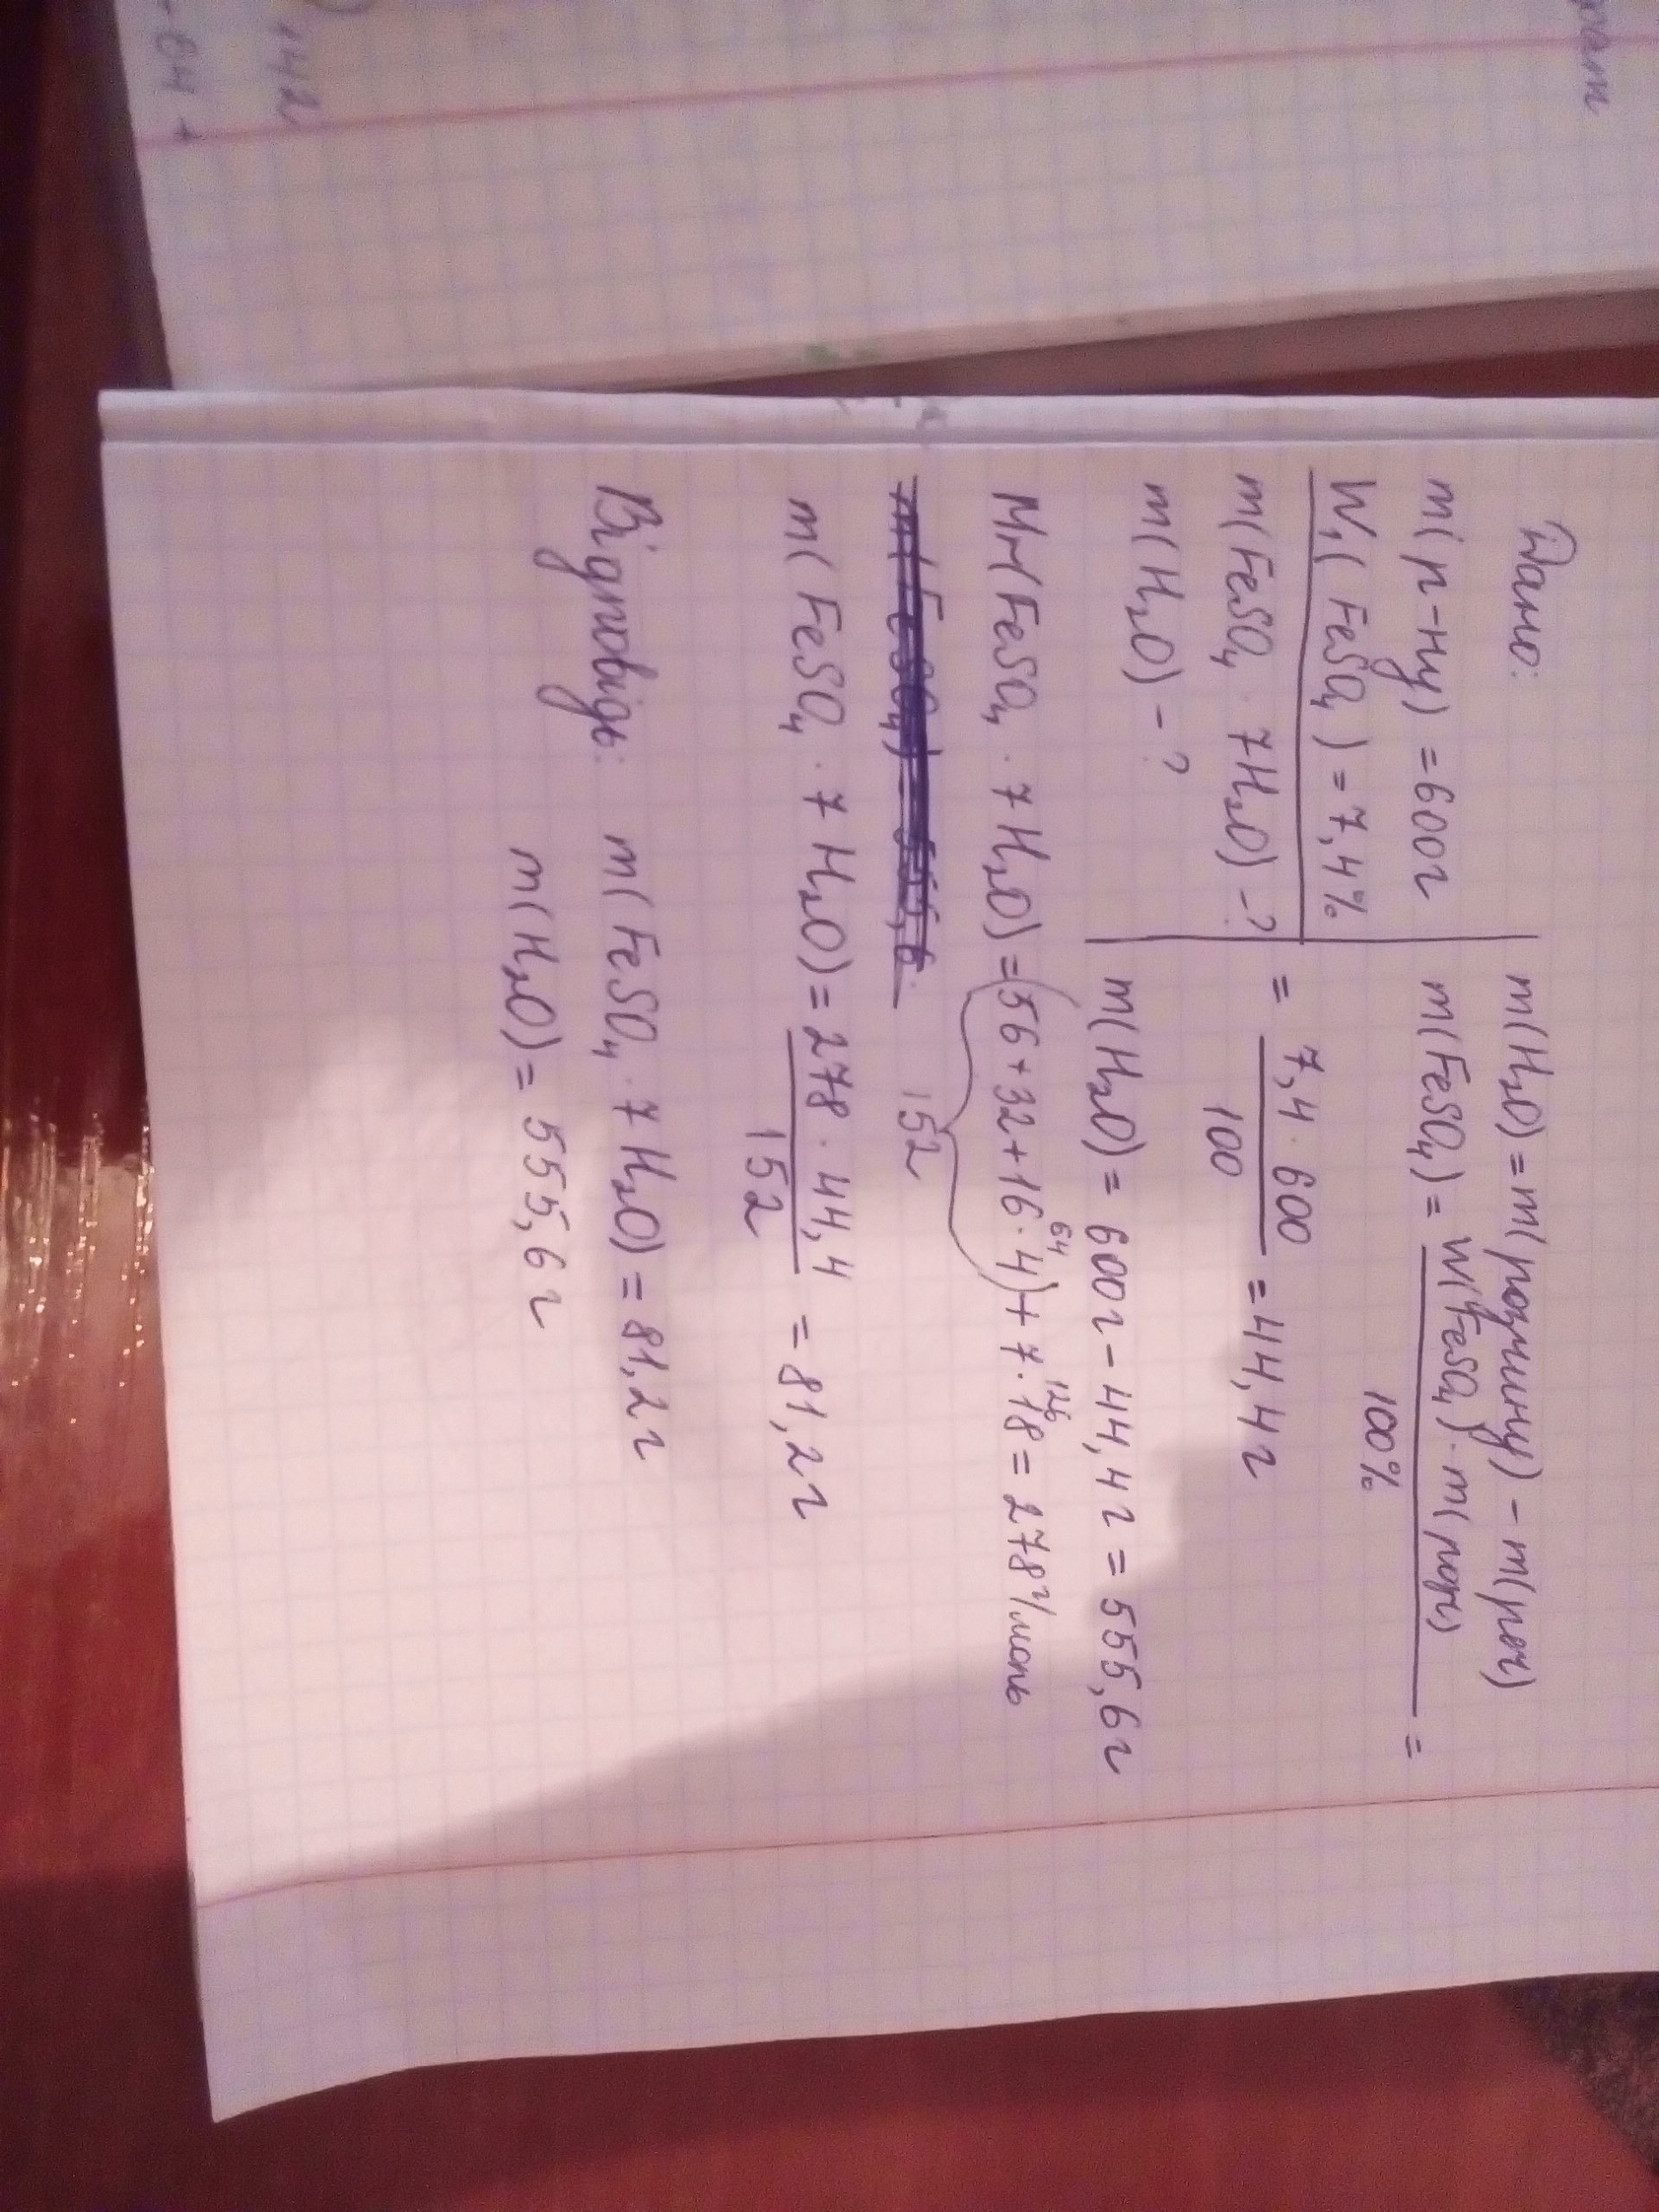 Дано:
m(р-ну) = 600г
W₁(FeSO₄) = 7,4%
m(FeSO₄ · 7H₂O) -?
m(H₂O) - ?
m(H₂O) = m(розчину) - m(реч)
m(FeSO₄) = W(FeSO₄) · m(розч) / 100% =
= 7,4 · 600 / 100 = 44,4 г
m(H₂O) = 600г - 44,4 г = 555,6г
Mr(FeSO₄ · 7H₂O) = (56+32+16·4)⁶⁴ + 7·18¹²⁶ = 278 г/моль
152
m(FeSO₄) 555,6
m(FeSO₄ · 7H₂O) = 278 · 44,4 / 152 = 81,2 г
Відповідь: m(FeSO₄ · 7H₂O) = 81,2 г
m(H₂O) = 555,6 г
142
64 +